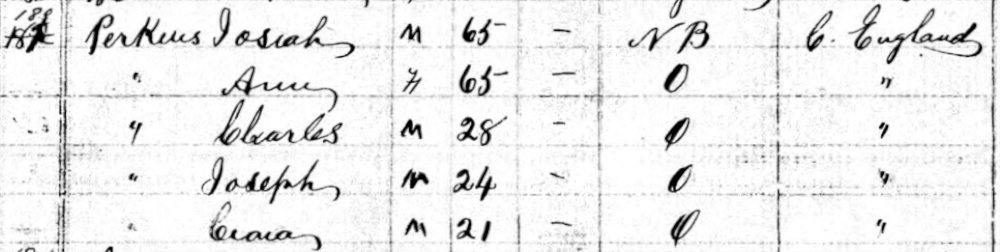 188
Perkins Josiah M 65 – N B C. England
" Ann F 65 – O "
" Charles M 28 – O "
" Joseph M 24 – O "
" M 21 – O "